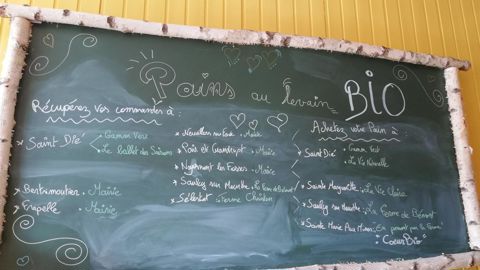 Pains au levain BIO
Récupérez vos commandes à :
* Saint Dié
Gamm Vert
Le ballet des Saisons
* Bertrimoutier . Mairie
* Frapelle . Mairie
* Neuvillers sur Fave . Mairie
* Pair et Grandrupt . Mairie
* Mairie
* Saulcy sur Meurthe .
* Sélestat : Ferme
Achetez votre Pain à :
* Saint Dié
. Gamm Vert
. La Vie Naturelle
* Sainte Marguerite . La Vie Claire
* Saulcy sur Meurthe . La Ferme de Benoit
* Sainte Marie Aux Mines . En passant par la Ferme
. "Coeur Bio"